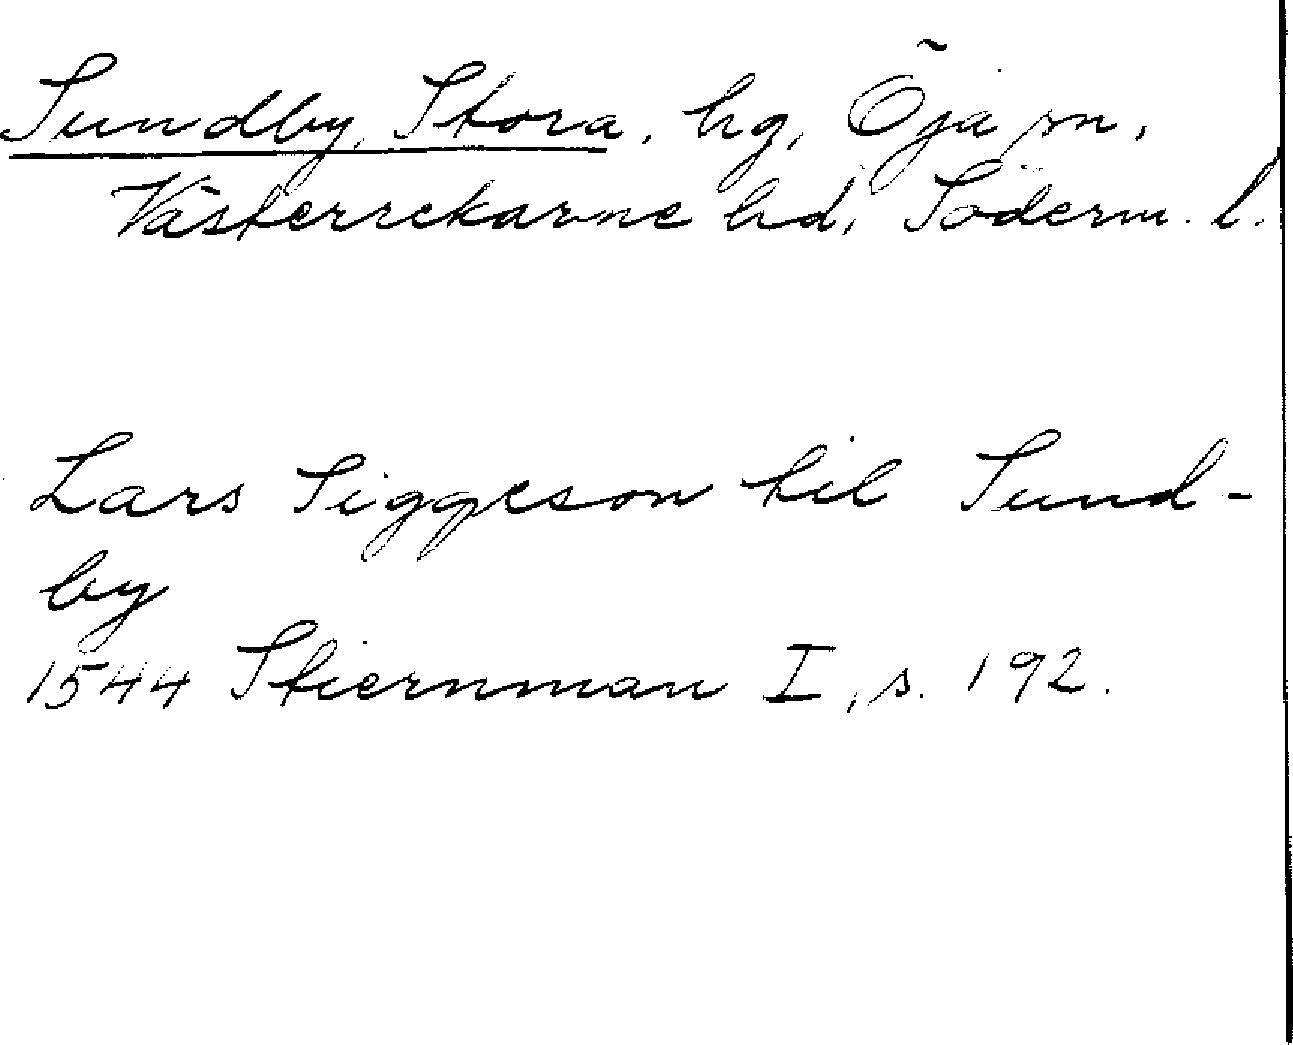 Sundby, Stora, hg, Öja sn,
Västerrekarne hd, Söderm. l.
Lars Siggeson til Sund-
by
1544 Stiernman I, s. 192.